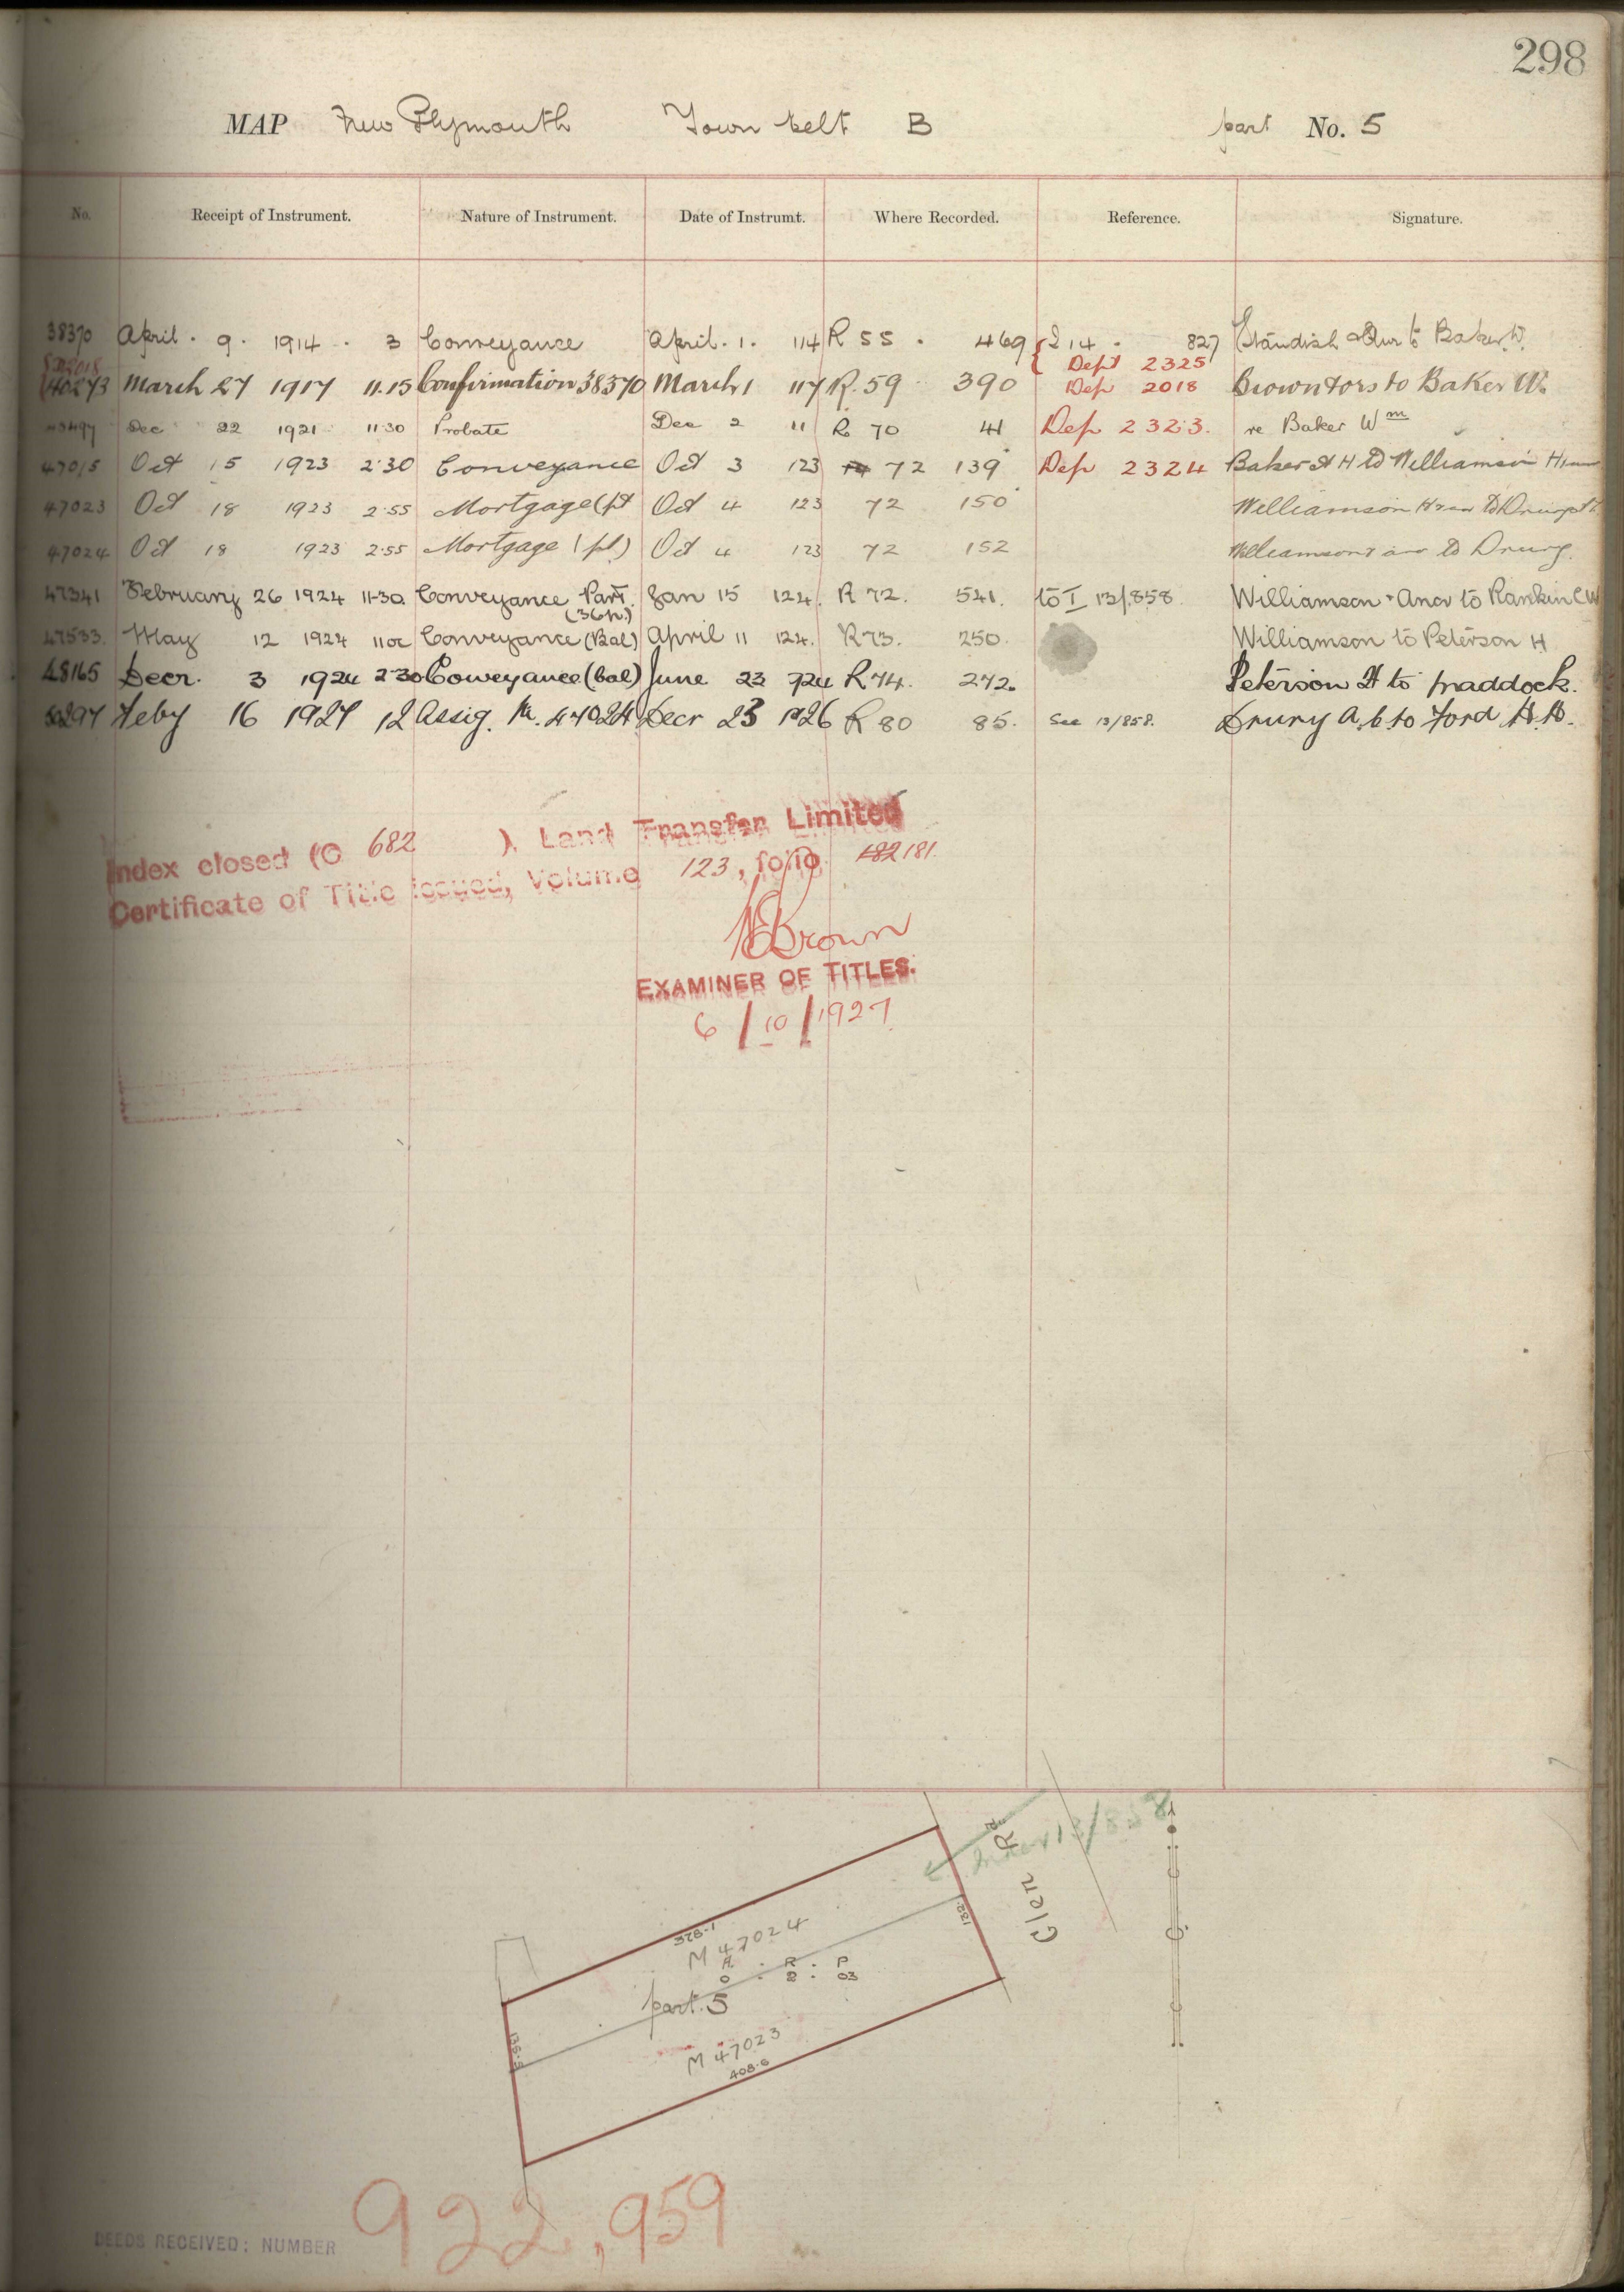 298
MAP New Plymouth Town belt B part No. 5
No. Receipt of Instrument. Nature of Instrument. Date of Instrumt. Where Recorded. Reference. Signature.
38370 April . 9 . 1914 . 3 Conveyance April . 1 . 114 R 55 . 469 I 14 . 827 Standish & Anr to Baker W.
Dept 2325
40273 March 27 1917 11.15 Confirmation 38370 March 1 117 R. 59 390 Dep 2018 Brown to Baker W.
Dec 22 1921 11.30 Probate Dec 2 11 R 70 41 Dep 2323. re Baker Wm
47015 Oct 15 1923 2.30 Conveyance Oct 3 123 72 139 Dep 2324 Baker A H to Williamson
47023 Oct 18 1923 2.55 Mortgage (pt Oct 4 123 72 150 Williamson
47024 Oct 18 1923 2.55 Mortgage (pt.) Oct 4 123 72 152 to Drury.
47341 February 26 1924 11-30. Conveyance Part. Jan 15 124. R 72. 541. to I 13/.858 Williamson & Anor to Rankin C W
(36 p.)
47533. May 12 1924 11 oc Conveyance (Bal) April 11 124. R 73. 250. Williamson to Peterson H
48165 Decr. 3 1924 2-30 Conveyance (bal) June 23 924 R 74. 272. Peterson H to Maddock.
Feby 16 1927 12 Assig. M. 47024 Decr 23 1926 R 80 85. See 13/858. Drury A. C. to Ford H. B.
Index closed (C 682 ), Land Transfer Limited
Certificate of Title issued, Volume 123, folio 182 181.
Brown
EXAMINER OF TITLES.
6/10/1927
Index 13/858
Glen Rd
328.1
M 47024
132.
A. R. P
0 . 2 . 03
part. 5
135.5
M 47023
408.6
922,959
DEEDS RECEIVED: NUMBER